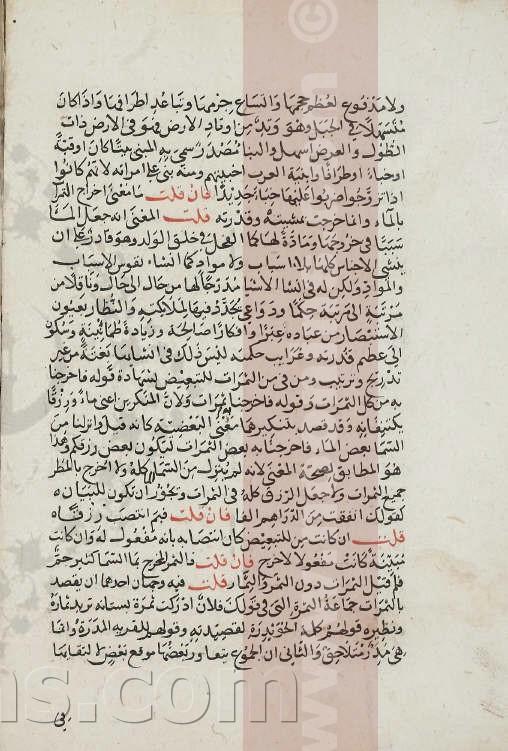 ولا مدفوع لعظم حجمها واتساع جرمها وتباعد اطرافها واذا كان
متسهلا في الجبل وهو وتد من اوتاد الارض فهو في الارض ذات
الطول والعرض اسهل والبنا مصدر سمي به المبني بيتا كان او قبة
او خباء او طرافا وابنية العرب اخبيتهم ومنه بنى على امراته لانهم كانوا
اذا تزوجوا ضربوا عليها خباء جديدا فان قلت ما معنى اخراج الثمرات
بالماء وانما خرجت بمشيته وقدرته قلت المعنى انه جعل الماء
سببا في خروجها ومادة لها كماء الفحل في خلق الولد وهو قادر على ان
ينشي الاجناس كلها بلا اسباب ولا مواد كما انشاء نفوس الاسباب
والمواد ولكن له في انشا الاشيا مدرجا لها من حال الى حال وناقلا من
مرتبة الى مرتبة حكما ودواعي يجدد فيها لملائكته والنظار بعيون
الاستبصار من عباده عبرا وافكارا صالحة وزيادة طمانينة وسكون
الى عظيم قدرته وغرايب حكمته ليس ذلك في انشايها بغتة من غير
تدريج وترتيب ومن في من الثمرات للتبعيض بشهادة قوله فاخرجنا
به من كل الثمرات وقوله فاخرجنا به ثمرات ولان المنكرين اعني ماء ورزقا
يكتنفانه وقد قصد بتنكيرهما معنى البعضية كانه قيل وانزلنا من
السما بعض الماء فاخرجنا به بعض الثمرات ليكون بعض رزقكم وهذا
هو المطابق لصحة المعنى لانه لم ينزل من السما الماء كله ولا اخرج بالمطر
جميع الثمرات ولا جعل الرزق كله في الثمرات ويجوز ان تكون للبيان
كقولك انفقت من الدراهم الفا فان قلت فبم انتصب رزقا
قلت ان كانت من للتبعيض كان انتصابه بانه مفعول له وان كانت
مبينة كانت مفعولا لاخرج فان قلت فالثمر المخرج بما السما كثير جم
فلم قيل الثمرات دون الثمر والثمار قلت فيه وجهان احدهما ان يقصد
بالثمرات جماعة الثمرة التي في قولك فلان ادركت ثمرة بستانه تريد ثماره
ونظيره قولهم كلمة الحويدرة لقصيدته وقولهم للقرية المدرة وانما
هي مدر متلاحق والثاني ان الجموع يتعاور بعضها موقع بعض لالتقايها
في